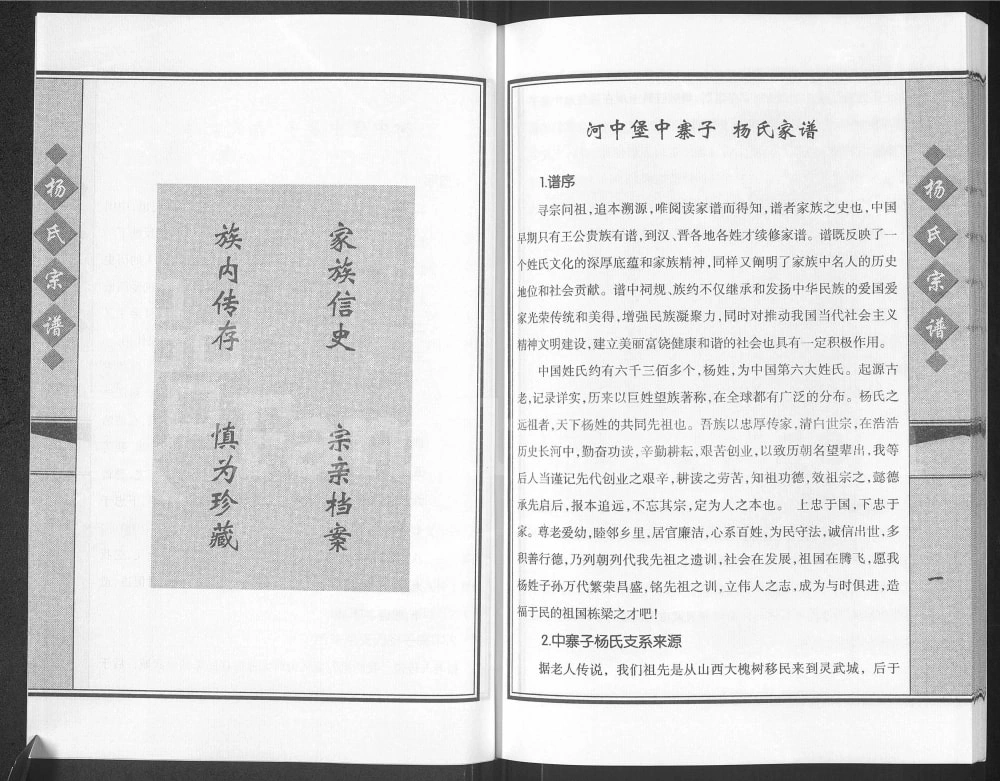 杨氏宗谱
家族信史
宗亲档案
族内传存
慎为珍藏
河中堡中寨子 杨氏家谱
1.谱序
寻宗问祖,追本溯源,唯阅读家谱而得知,谱者家族之史也,中国
早期只有王公贵族有谱,到汉、晋各地各姓才续修家谱。谱既反映了一
个姓氏文化的深厚底蕴和家族精神,同样又阐明了家族中名人的历史
地位和社会贡献。谱中祠规、族约不仅继承和发扬中华民族的爱国爱
家光荣传统和美得,增强民族凝聚力,同时对推动我国当代社会主义
精神文明建设,建立美丽富饶健康和谐的社会也具有一定积极作用。
中国姓氏约有六千三佰多个,杨姓,为中国第六大姓氏。起源古
老,记录详实,历来以巨姓望族著称,在全球都有广泛的分布。杨氏之
远祖者,天下杨姓的共同先祖也。吾族以忠厚传家,清白世宗,在浩浩
历史长河中,勤奋功读,辛勤耕耘,艰苦创业,以致历朝名望辈出,我等
后人当谨记先代创业之艰辛,耕读之劳苦,知祖功德,效祖宗之,懿德
承先启后,报本追远,不忘其宗,定为人之本也。 上忠于国,下忠于
家。尊老爱幼,睦邻乡里,居官廉洁,心系百姓,为民守法,诚信出世,多
积善行德,乃列朝列代我先祖之遗训,社会在发展,祖国在腾飞,愿我
杨姓子孙万代繁荣昌盛,铭先祖之训,立伟人之志,成为与时俱进,造
福于民的祖国栋梁之才吧!
2.中寨子杨氏支系来源
据老人传说，我们祖先是从山西大槐树移民来到灵武城，后于
杨氏宗谱
一